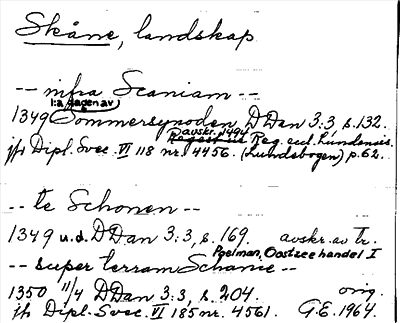 Skåne, landskap
-- infra Scaniam --
1:a dagen av
1349 Sommersynoden, DDan 3:3, s. 132.
avskr. 1494
Reg. eccl. Lundensis
jfr Dipl. Svec. VI 118 nr. 4456. (Lundsbogen) p. 62.
-- te Schonen --
1349 u.d. DDan 3:3, s. 169. avskr. av tr.
Poelman, Oostzeehandel I
-- super terram Schanie --
1350 11/4 DDan 3:3, s. 204. orig.
jfr Dipl. Svec. VI 185 nr. 4561. G.E. 1964.